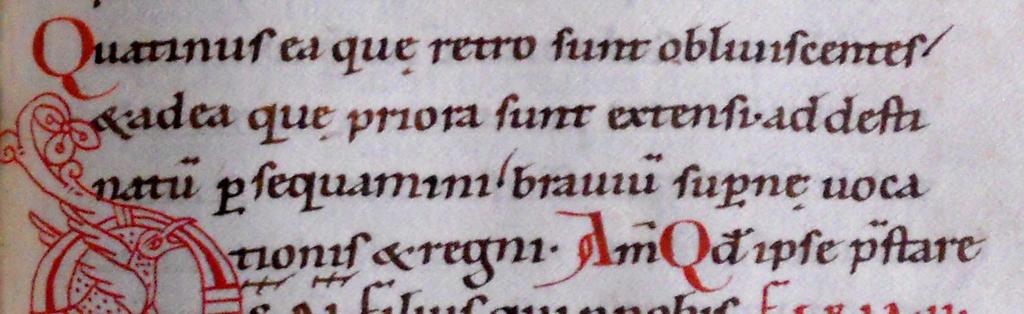 Quatinus ea quę retro sunt obliuiscentes/
& ad ea quę priora sunt extensi· ad desti
natū p̲sequamini! brauiū sup̲nę uoca
tionis & regni· Am̄ Qđ ipse p̄stare
filius qui nobis